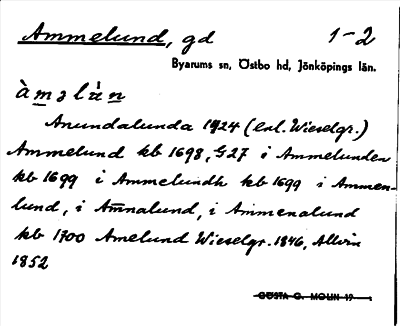 Ammelund, gd 1-2
Byarums sn, Östbo hd, Jönköpings län.
àmɜlùn
Anundalunda 1424 (enl. Wieselgr.)
Ammelund kb 1698, G27 i Ammelunden
kb 1699 i Ammelundh kb 1699 i Ammen-
lund, i Am̄nalund, i Ammenalund
kb 1700 Amelund Wieselgr. 1846, Allvin
1852
GÖSTA G. MOLIN 19